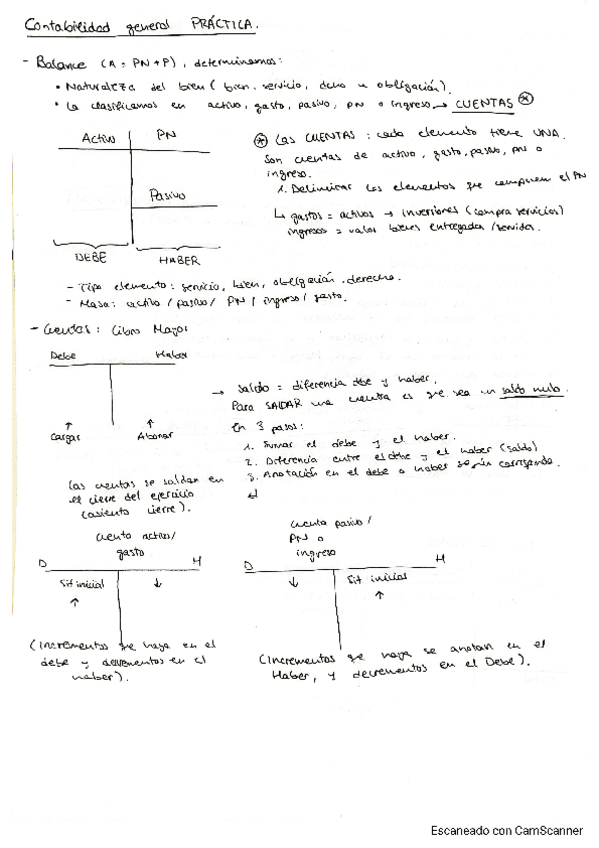 Contabilidad general PRÁCTICA.
- Balance (A = PN + P), determinamos:
• Naturaleza del bien (bien, servicio, dcho u obligación).
• La clasificamos en activo, gasto, pasivo, PN o ingreso → CUENTAS *
Activo PN
Pasivo
DEBE HABER
* Las CUENTAS: cada elemento tiene UNA.
Son cuentas de activo, gasto, pasivo, PN o
ingreso.
1. Delimitar los elementos que componen el PN
↳ gastos = activos → inversiones (compra servicios)
ingresos = valor bienes entregados/servidos.
- Tipo elemento: servicio, bien, obligación, derecho.
- Masa: activo / pasivo / PN / ingreso / gasto.
- Cuentas: Libro Mayor
Debe Haber
↑ ↑
Cargar Abonar
→ Saldo = diferencia debe y haber.
Para SALDAR una cuenta es que sea un saldo nulo.
En 3 pasos:
1. Sumar el debe y el haber.
2. Diferencia entre el debe y el haber (saldo)
3. Anotación en el debe o haber según corresponda.
Las cuentas se saldan en
el cierre del ejercicio
(asiento cierre).
cuenta activo/
gasto
D H
Sit inicial ↓
↑
(Incrementos que haya en el
debe y decrementos en el
haber).
cuenta pasivo/
PN o
ingreso
D H
↓ Sit inicial
↑
(Incrementos que haya se anotan en el
Haber, y decrementos en el Debe).
Escaneado con CamScanner